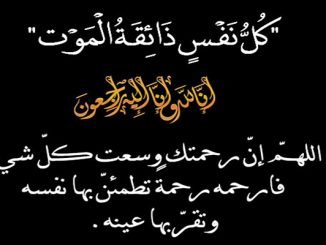 "كُلُّ نَفْسٍ ذَائِقَةُ الْمَوْت"
انا لله وانا اليه راجعون
اللهمّ إنّ رحمتك وسعت كلّ شي
فارحمه رحمة تطمئنّ بها نفسه
وتقرّ بها عينه .